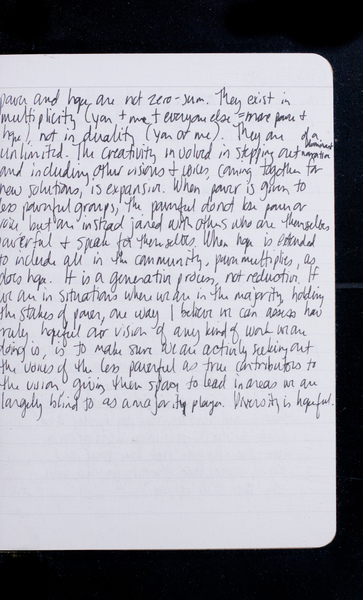 power and hope are not zero-sum. They exist in
multiplicity (you + me + everyone else = more power +
hope), not in duality (you or me). They are
unlimited. The creativity involved in stepping out of a dominant narrative
and including other visions + voices, coming together for
new solutions, is expansion. When power is given to
less powerful groups, the powerful do not lose power or
voice but are instead joined with others who are themselves
powerful + speak for themselves. When hope is extended
to include all in the community, power multiplies, as
does hope. It is a generative process, not reduction. If
we are in situations where we are in the majority, holding
the stakes of power, one way I believe we can assess how
truly hopeful our vision of any kind of work we are
doing is, is to make sure we are actively seeking out
the voices of the less powerful as true contributors to
the vision, giving them space to lead in areas we are
largely blind to as a majority player. Diversity is hopeful.